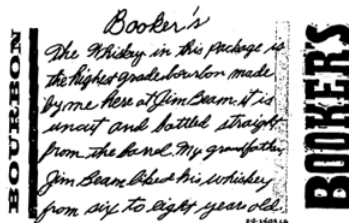 Booker's
The Whiskey in this package is
the highest grade bourbon made
by me here at Jim Beam. it is
uncut and bottled straight
from the barrel. My grandfather
Jim Beam liked his whiskey
from six to eight years old.
BOURBON
BOOKER'S